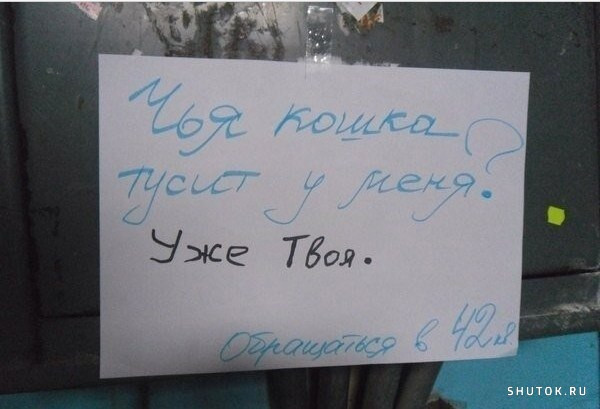 Чья кошка
тусит у меня?
Уже Твоя.
Обращаться в 42 кв.
SHUTOK.RU